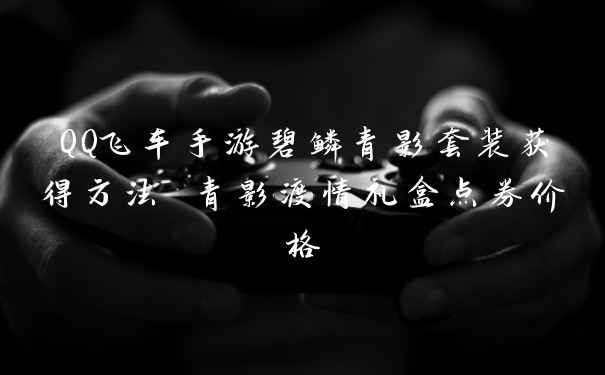 QQ飞车手游碧鳞青影套装获
得方法 青影渡情礼盒点券价
格